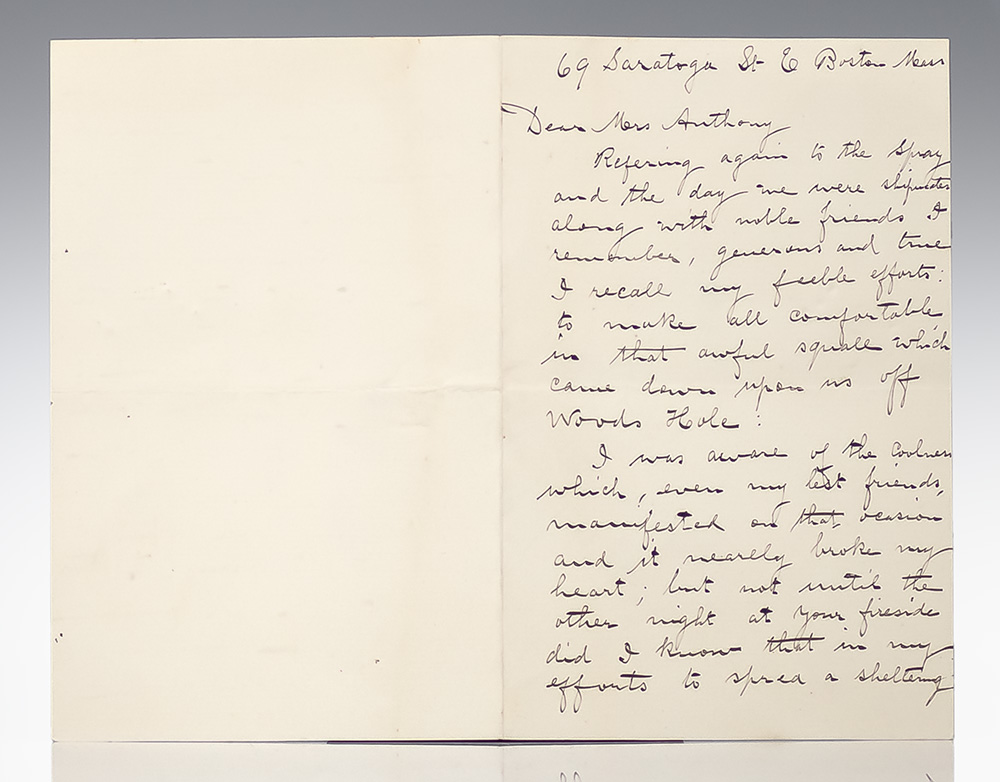 69 Saratoga St E Boston Mass
Dear Mrs Anthony
Refering again to the Spray
and the day we were shipmates
along with noble friends I
remember, generous and true
I recall my feeble efforts:
to make all comfortable
in that awful squale which
came down upon us off
Woods Hole:
I was aware of the coolness
which, even my best friends,
manifested on that ocasion
and it nearely broke my
heart; but not until the
other night at your fireside
did I know that in my
efforts to spread a sheltering